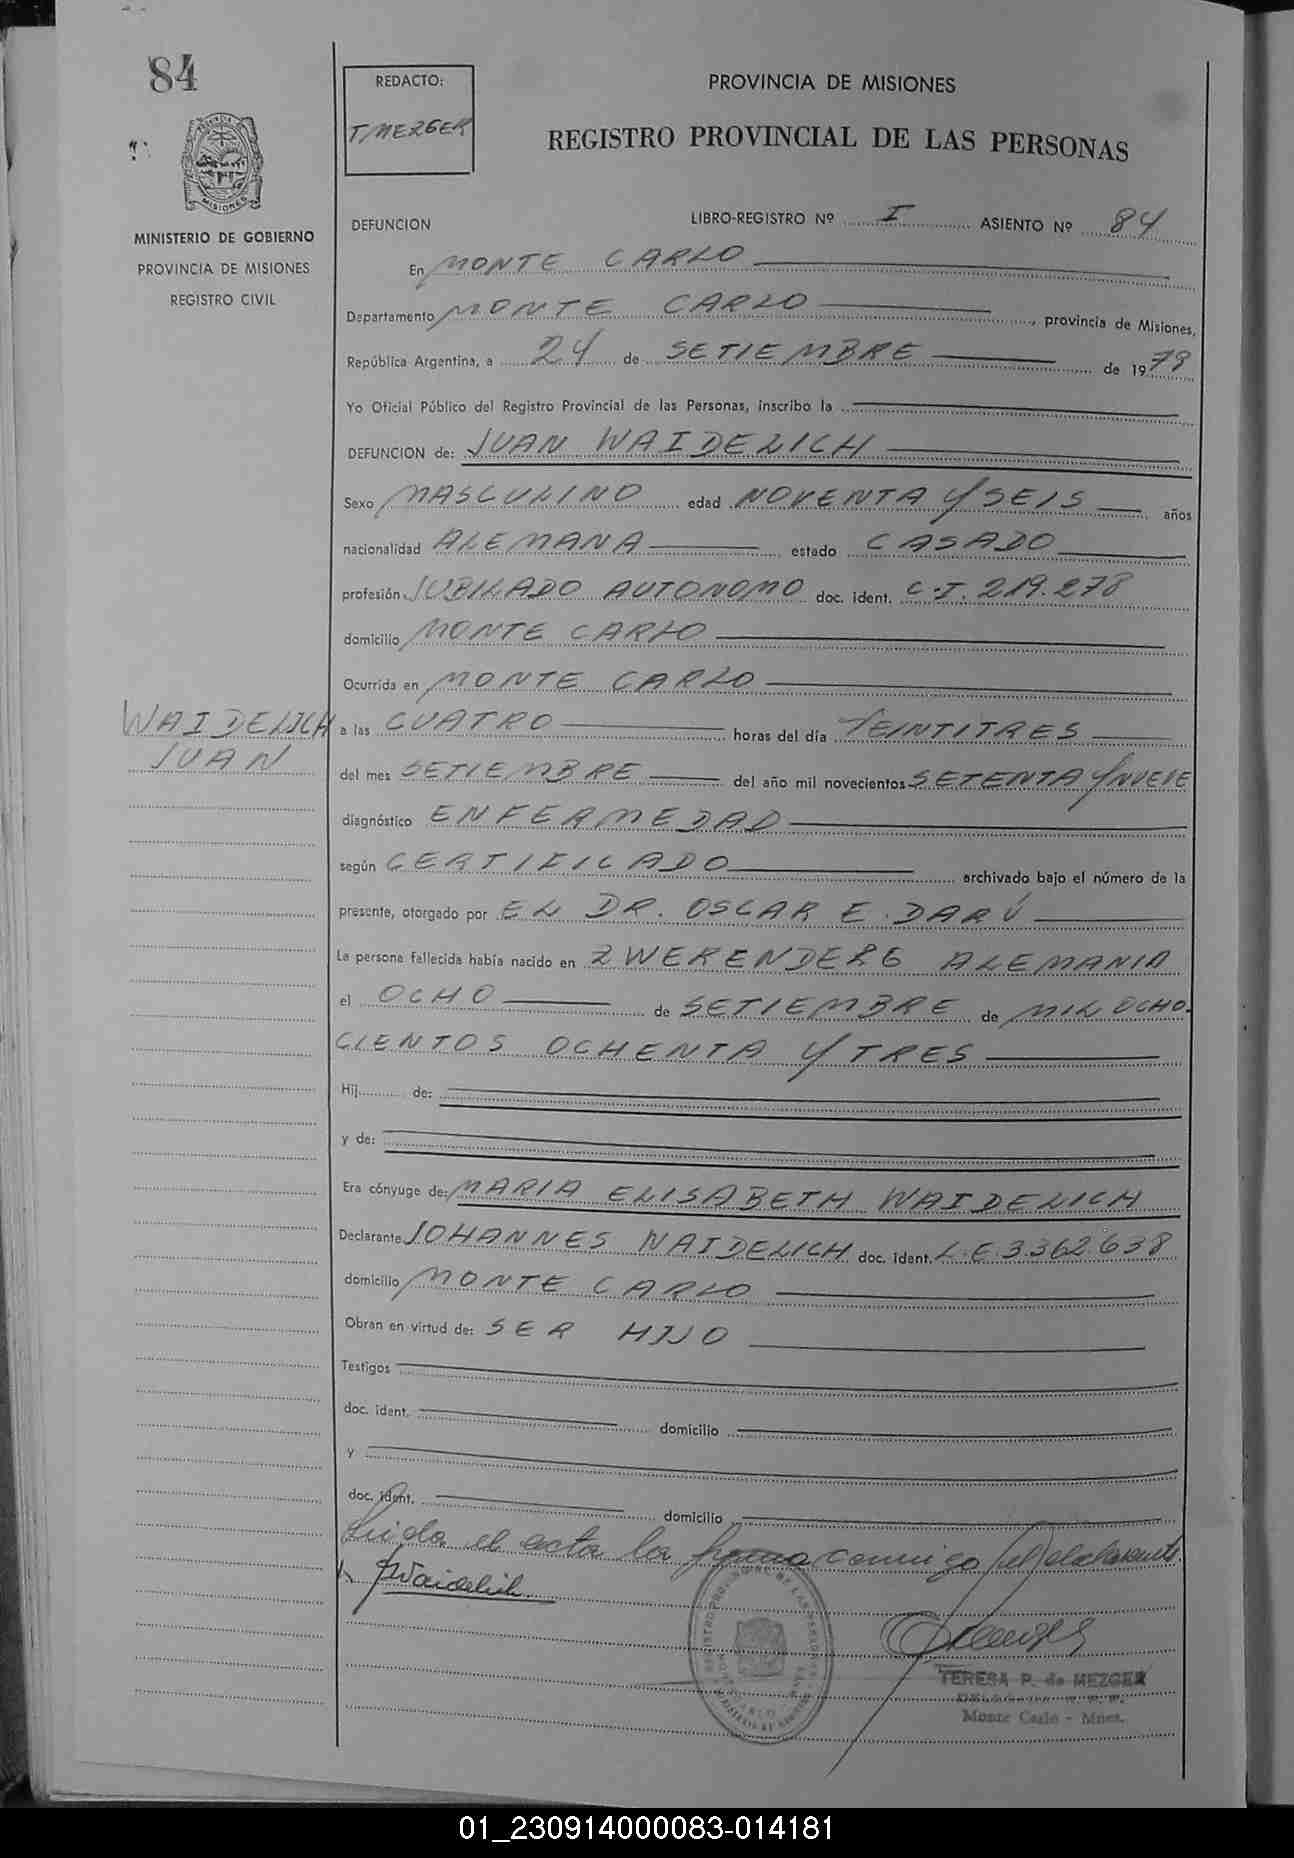 84
REDACTO:
T/MEZGER
PROVINCIA DE MISIONES
REGISTRO PROVINCIAL DE LAS PERSONAS
MISIONES
MINISTERIO DE GOBIERNO
PROVINCIA DE MISIONES
REGISTRO CIVIL
DEFUNCION
LIBRO-REGISTRO Nº I ASIENTO Nº 84
En MONTE CARLO
Departamento MONTE CARLO, provincia de Misiones,
República Argentina, a 24 de SETIEMBRE de 1979
Yo Oficial Público del Registro Provincial de las Personas, inscribo la
DEFUNCION de: JUAN WAIDELICH
Sexo MASCULINO edad NOVENTA Y SEIS años
nacionalidad ALEMANA estado CASADO
profesión JUBILADO AUTONOMO doc. ident. C.I. 219.278
domicilio MONTE CARLO
Ocurrida en MONTE CARLO
WAIDELICH
JUAN
a las CUATRO horas del día VEINTITRES
del mes SETIEMBRE del año mil novecientos SETENTA Y NUEVE
diagnóstico ENFERMEDAD
según CERTIFICADO archivado bajo el número de la
presente, otorgado por EL DR. OSCAR E. DARÚ
La persona fallecida había nacido en ZWERENBERG ALEMANIA
el OCHO de SETIEMBRE de MIL OCHO-
CIENTOS OCHENTA Y TRES
Hij de:
y de:
Era cónyuge de: MARIA ELISABETH WAIDELICH
Declarante JOHANNES WAIDELICH doc. ident. L.E. 3.362.638
domicilio MONTE CARLO
Obran en virtud de: SER HIJO
Testigos
doc. ident. domicilio
y
doc. ident. domicilio
Leida el acta la firma conmigo el declarante
JWaidelich
TERESA P. de MEZGER
Monte Carlo - Mnes.
01_230914000083-014181